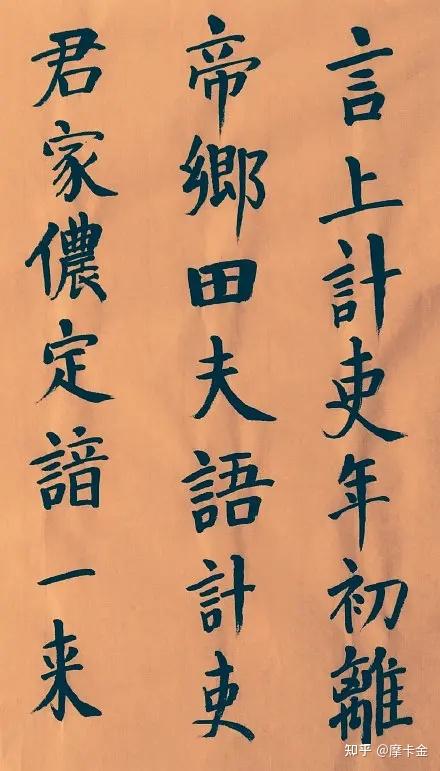 言上計吏年初離
帝鄉田夫語計吏
君家儂定諳一来
知乎 @摩卡金